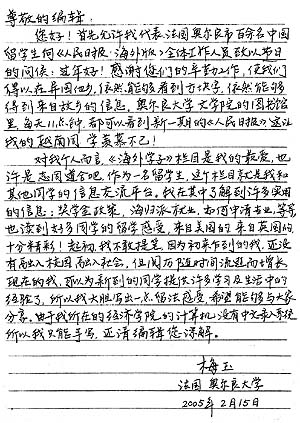 尊敬的编辑：
您好！首先允许我代表法国奥尔良市百余名中国
留学生向《人民日报·海外版》全体工作人员致以节日
的问候：过年好！感谢您们的辛勤工作，使我们
得以在异国他乡，依然能够看到方块字，依然能够
得到来自故乡的信息，奥尔良大学文学院的图书馆
里，每天11点钟，都可以看到新一期的《人民日报》。这让
我的越南同学羡慕不已！
对我个人而言，《海外学子》栏目是我的最爱，也
许是志同道合吧，作为一名留学生，这个栏目就是我和
其他同学的信息交流平台，我在其中了解到许多实用
的信息：奖学金政策，海归派就业，如何申请专业，等等
也读到好多同学的留学感受，来自美国的，来自英国的
十分精彩！起初，我不敢提笔，因为初来乍到的我，还没
有融入校园融入社会，但阅历随时间流逝而增长
现在的我，可以为新到的同学提供许多学习及生活中的
经验了，所以我大胆写出一点留法感受，希望能够与大家
分享。由于我所在的经济学院的计算机没有中文录入系统
所以我只能手写，还请编辑您谅解。
梅玉
法国 奥尔良大学
2005年 2月15日